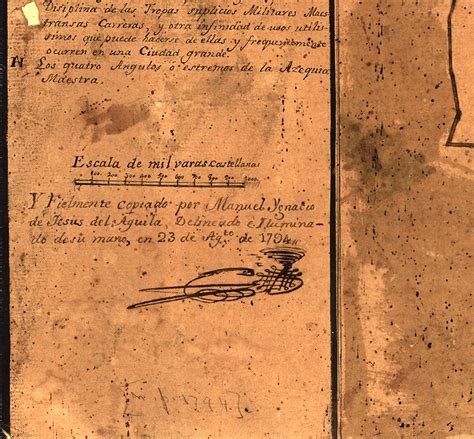 Disiplina de las Tropas suplicios Militares Maes
transas Carreras, y otra infinidad de usos utilis
simos que puede hacerse de ellas y frequentemente
ocurren en una Ciudad grande.
N Los quatro Angulos ó estremos de la Azequia
Maestra.
Escala de mil varas Castellanas
100. 200. 300. 400. 500. 600. 700. 800. 900. 1000.
Y Fielmente copiado por Manuel Ygnacio
de Jesus del Aguila, Delineado é Ilumina
do de su mano, en 23 de Agto. de 1794
1794